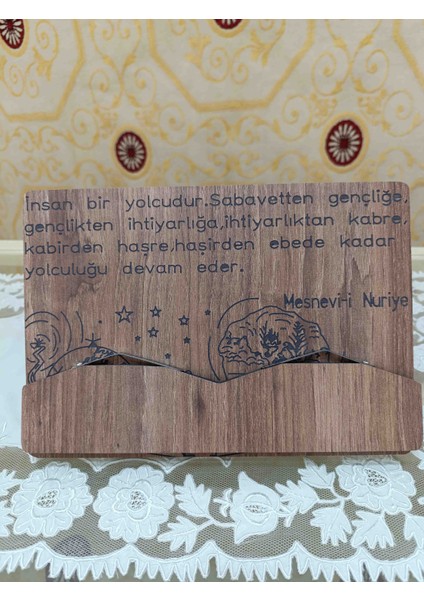 İnsan bir yolcudur.Sabavetten gençliğe,
gençlikten ihtiyarlığa,ihtiyarlıktan kabre,
kabirden haşre,haşirden ebede kadar
yolculuğu devam eder.
Mesnevi-i Nuriye